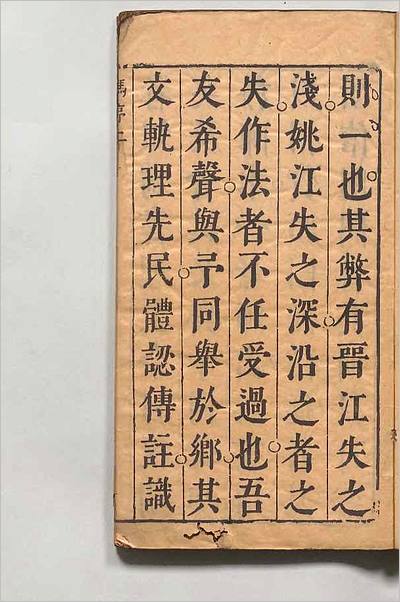 則一也其弊有晉江失之
淺姚江失之深沿之者之
失作法者不任受過也吾
友希聲與予同舉於鄉其
文軌理先民體認傳註識